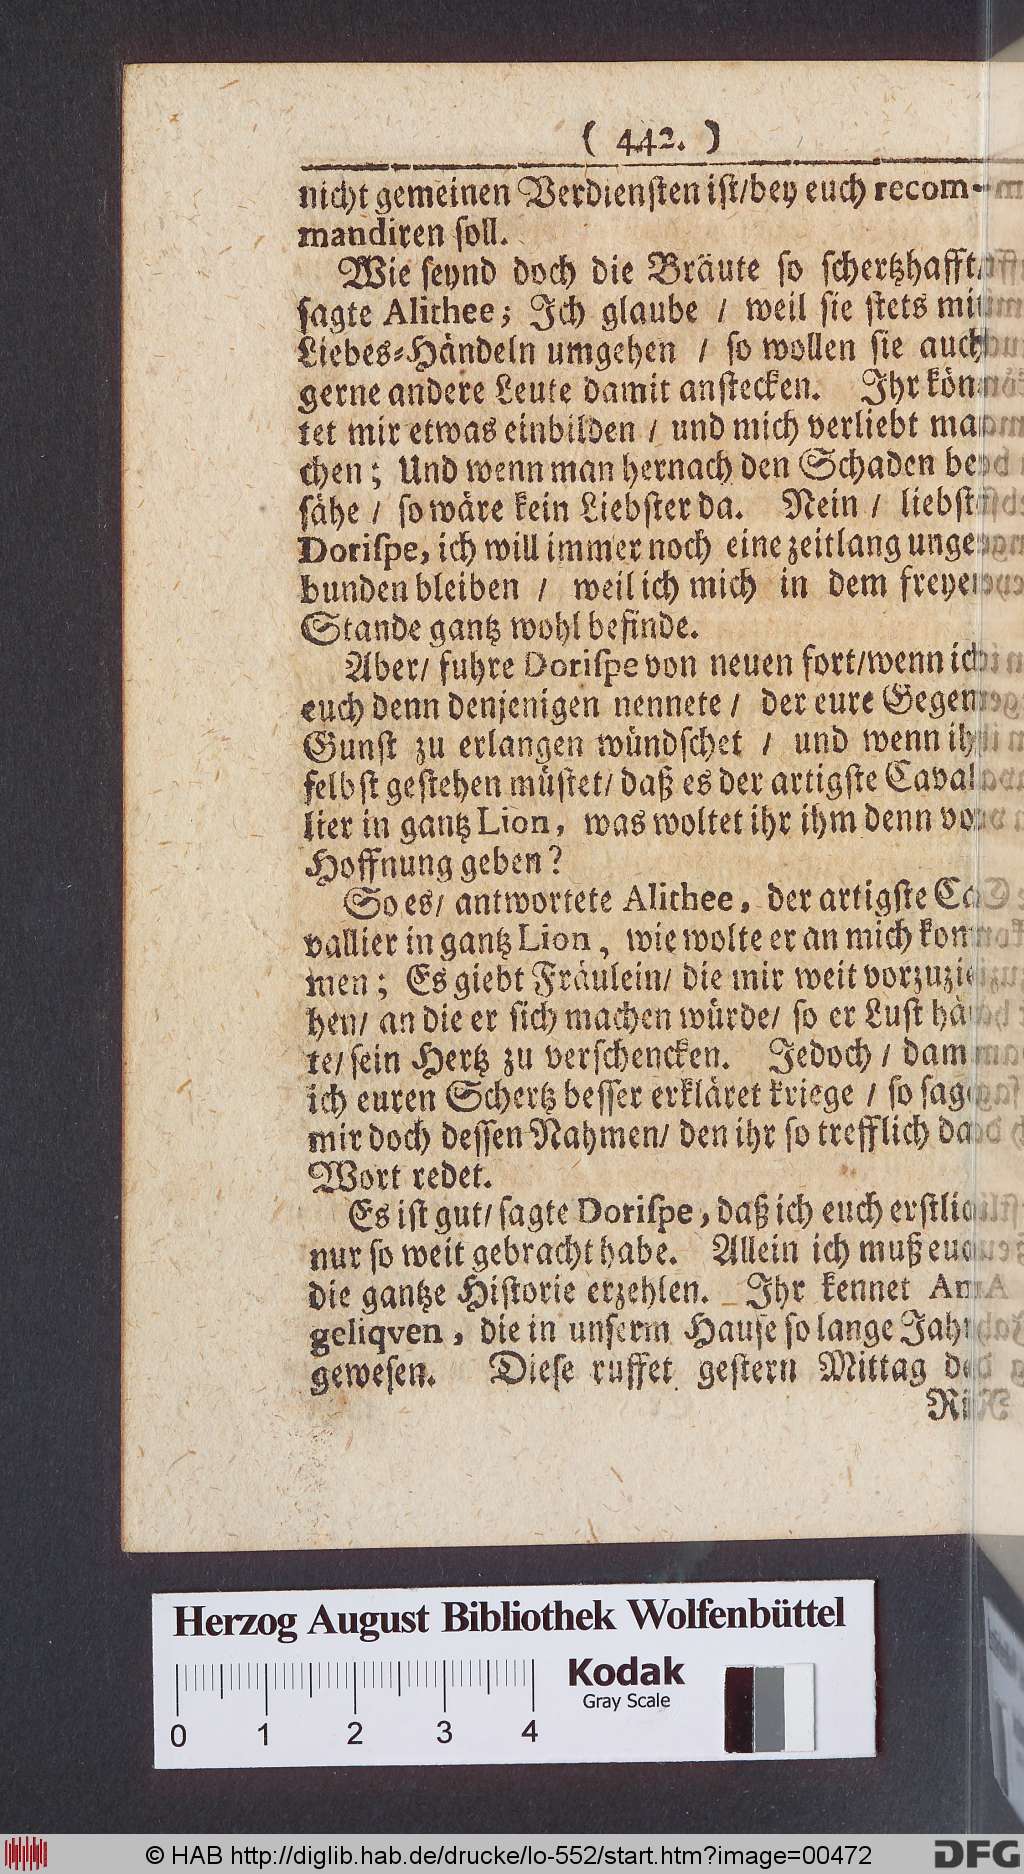 ( 442. )
nicht gemeinen Verdiensten ist/bey euch recom-
mandiren soll.
Wie seynd doch die Bräute so schertzhafft/
sagte Alithee; Ich glaube / weil sie stets mit
Liebes-Händeln umgehen / so wollen sie auch
gerne andere Leute damit anstecken. Ihr kön-
tet mir etwas einbilden / und mich verliebt ma-
chen; Und wenn man hernach den Schaden be-
sähe / so wäre kein Liebster da. Nein / liebste
Dorispe, ich will immer noch eine zeitlang unge-
bunden bleiben / weil ich mich in dem freyen
Stande gantz wohl befinde.
Aber/ fuhre Dorispe von neuen fort/wenn ich
euch denn denjenigen nennete / der eure Gegen-
Gunst zu erlangen wündschet / und wenn ihr
selbst gestehen müstet/ daß es der artigste Caval-
lier in gantz Lion, was woltet ihr ihm denn vor
Hoffnung geben?
So es/ antwortete Alithee, der artigste Ca-
vallier in gantz Lion, wie wolte er an mich kom-
men; Es giebt Fräulein/ die mir weit vorzuzie-
hen/ an die er sich machen würde/ so er Lust hät-
te/ sein Hertz zu verschencken. Jedoch / damit
ich euren Schertz besser erkläret kriege / so saget
mir doch dessen Nahmen/ den ihr so trefflich das
Wort redet.
Es ist gut/ sagte Dorispe, daß ich euch erstlich
nur so weit gebracht habe. Allein ich muß euch
die gantze Historie erzehlen. Ihr kennet An-
geliqven, die in unserm Hause so lange Jahr
gewesen. Diese ruffet gestern Mittag den
Herzog August Bibliothek Wolfenbüttel
Kodak
Gray Scale
0 1 2 3 4
© HAB http://diglib.hab.de/drucke/lo-552/start.htm?image=00472
DFG